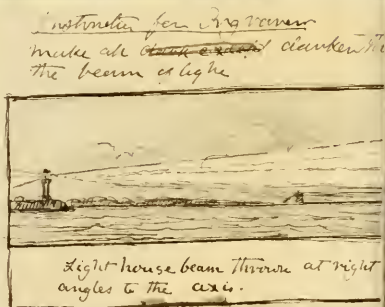 instruction for Engraver
make all dark except darken th
the beam of light
Light house beam thrown at right
angles to the axis.